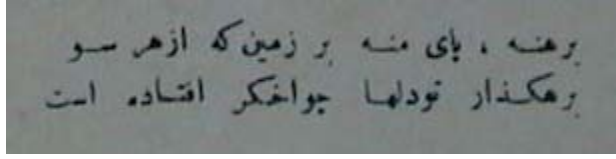 برهنه ، پای منه بر زمین که ازهر سو
برهگذار تودلها چواخگر افتاده است